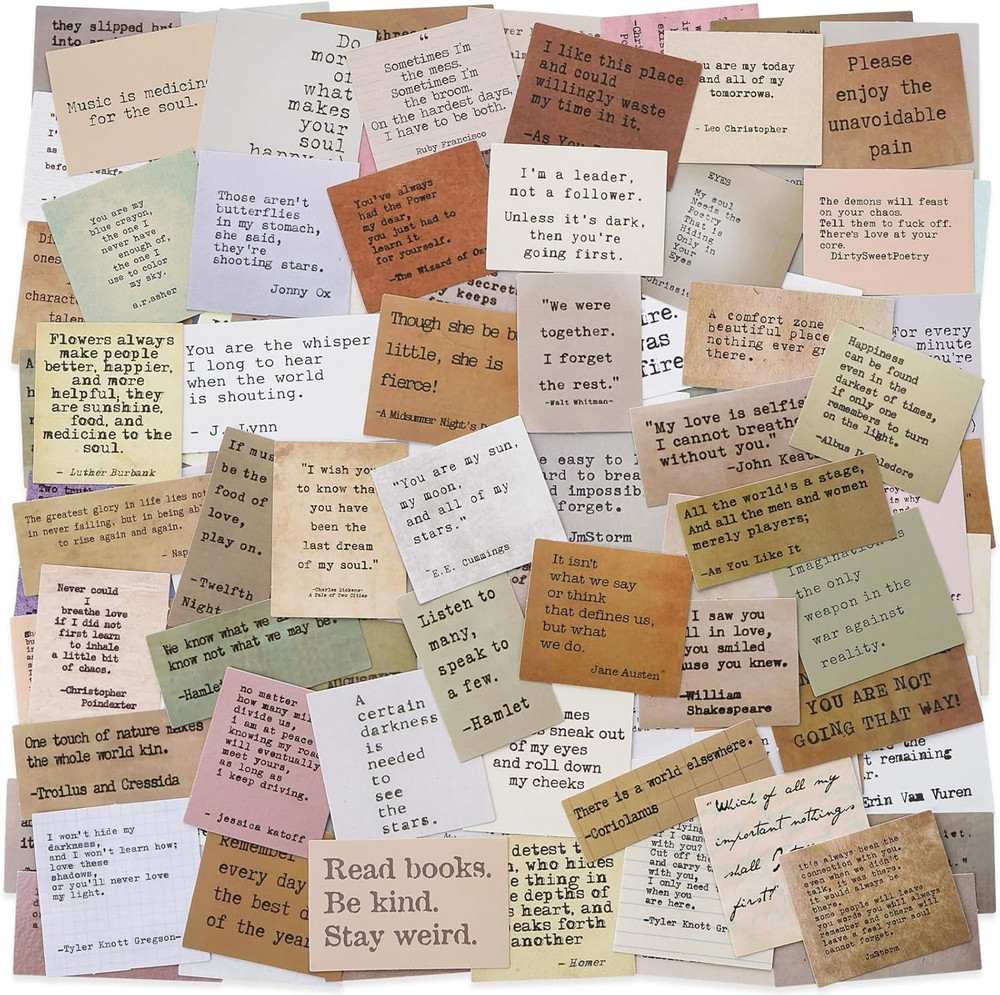 they slipped
into
Music is medicine
for the soul.
Do
more
of
what
makes
your
soul
happy
three
“
Sometimes I'm
the mess.
Sometimes I'm
the broom.
On the hardest days,
I have to be both.
Ruby Francisco
I like this place
and could
willingly waste
my time in it.
-As You
are my today
and all of my
tomorrows.
- Leo Christopher
Please
enjoy the
unavoidable
pain
You are my
blue crayon,
the one I
never have
enough of,
the one I
use to color
my sky.
a.r.asher
Those aren't
butterflies
in my stomach,
she said,
they're
shooting stars.
Jonny Ox
You've always
had the Power
my dear,
you just had to
learn it
for yourself.
-The Wizard of Oz
I'm a leader,
not a follower.
Unless it's dark,
then you're
going first.
EYES
My soul
Needs the
Poetry
That is
Hiding
Only in
Your
Eyes
The demons will feast
on your chaos.
Tell them to fuck off.
There's love at your
core.
DirtySweetPoetry
ones
talen
secret
keeps
Flowers always
make people
better, happier,
and more
helpful, they
are sunshine,
food, and
medicine to the
soul.
- Luther Burbank
You are the whisper
I long to hear
when the world
is shouting.
- J. Lynn
Though she be b
little, she is
fierce!
-A Midsummer Night's D
"We were
together.
I forget
the rest."
-Walt Whitman-
ire.
was
fire
A comfort zone
beautiful place
nothing ever
there.
For every
minute
you're
Happiness
can be found
even in the
darkest of times,
if only one
remembers to turn
on the light.
-Albus Dumbledore
"My love is selfis
I cannot breathe
without you."
-John Keat
Two trut
The greatest glory in life lies not
in never failing, but in being abl
to rise again and again.
- Nap
If mus
be the
food of
love,
play on.
-Twelfth
Night
"I wish you
to know tha
you have
been the
last dream
of my soul."
-Charles Dickens-
A Tale of Two Cities
"You are my sun,
my moon,
and all of my
stars."
~E.E. Cummings
e easy to l
ard to brea
d impossib
forget.
JmStorm
All the world's a stage,
And all the men and women
merely players;
-As You Like It
is why
Imagination is
the only
weapon in the
war against
reality.
Never could
I
breathe love
if I did not
first learn
to inhale
a little bit
of chaos.
-Christopher
Poindexter
We know what we a
know not what we may be.
-Hamlet
Listen to
many,
speak to
a few.
-Hamlet
It isn't
what we say
or think
that defines us,
but what
we do.
Jane Austen
I saw you
ll in love,
you smiled
use you knew.
-William
Shakespeare
YOU ARE NOT
GOING THAT WAY!
One touch of nature makes
the whole world kin.
-Troilus and Cressida
no matter
how many mil
divide us,
i am at peace
knowing my road
will eventually
meet yours,
as long as
i keep driving.
- jessica katoff
A
certain
darkness
is
needed
to
see
the
stars.
mes
sneak out
of my eyes
and roll down
my cheeks
There is a world elsewhere.
-Coriolanus
the
t remaining
r.
Erin Van Vuren
I won't hide my
darkness,
and I won't learn how;
love these
shadows,
or you'll never love
my light.
-Tyler Knott Gregson-
Remember
every day
the best d
of the yea
Read books.
Be kind.
Stay weird.
detest t
, who hides
e thing in
depths of
s heart, and
eaks forth
another
- Homer
with you?
Cut off the
and carry t
with you,
I only need
when you
are here.
-Tyler Knott Gr
"Which of all my
important nothings
shall I
first?"
it's always been the
connection with you.
even when we didn't
talk, it was there.
it would always be
there.
some people will leave
you words you will always
remember and others will
leave a feel your soul
cannot forget.
JmStorm